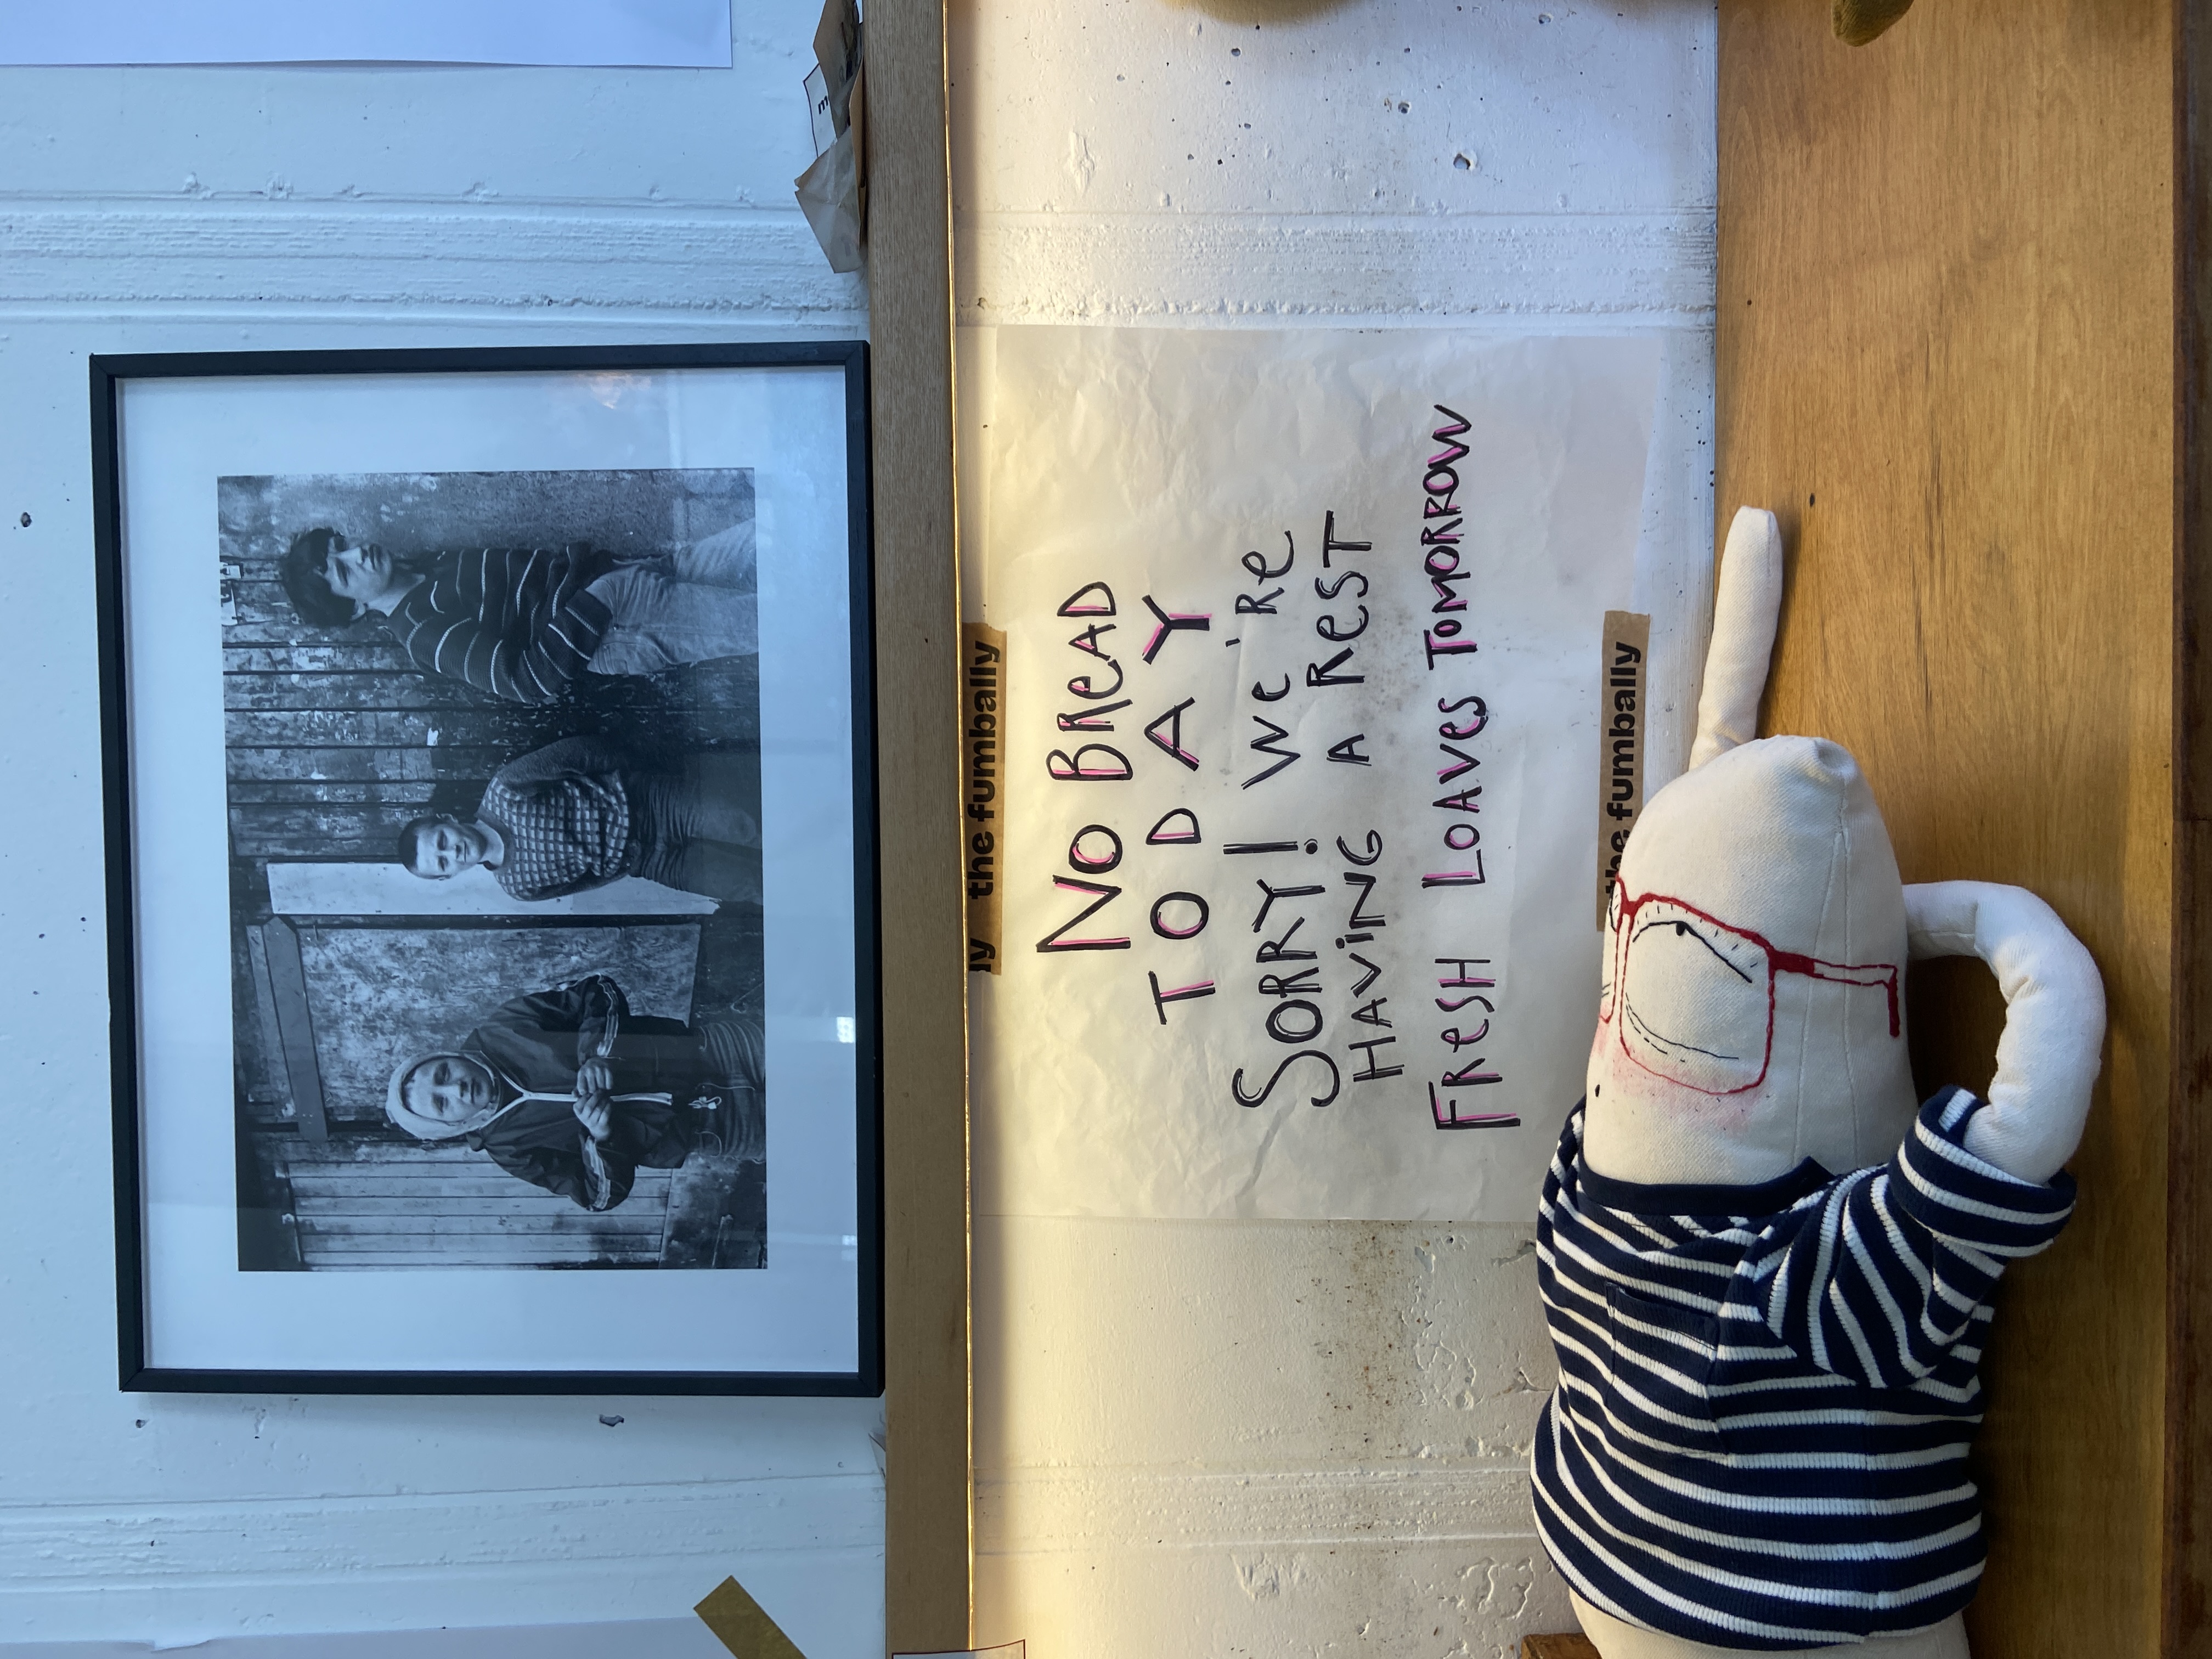 ly the fumbally
No BReAD
TODAY
SORRY! We'Re
HAViNG A ReST
FReSH LOAVeS TOMORROW
the fumbally